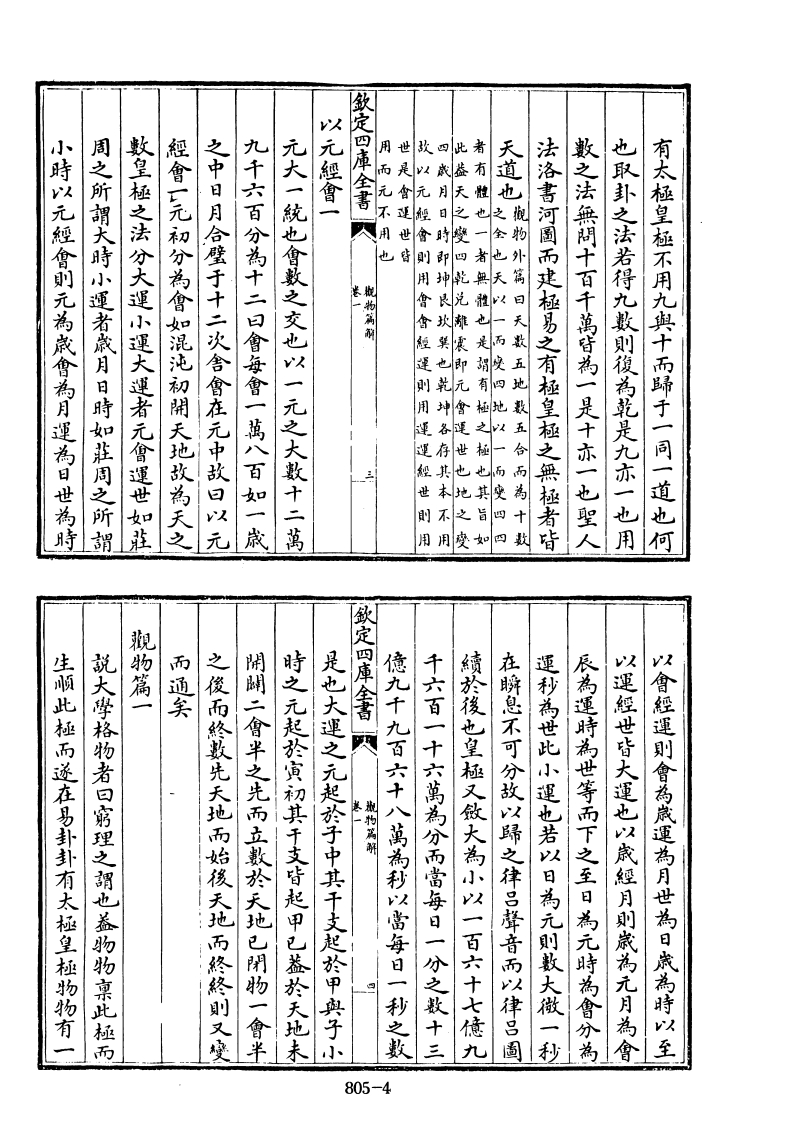 有太極皇極不用九與十而歸于一同一道也何
也取卦之法若得九數則復為乾是九亦一也用
數之法無問十百千萬皆為一是十亦一也聖人
法洛書河圖而建極易之有極皇極之無極者皆
天道也
觀物外篇曰天數五地數五合而為十數
之全也天以一而變四地以一而變四四
者有體也一者無體也是謂有極之極也其旨如
此蓋天之變四乾兌離震即元會運世也地之變
四歲月日時即坤艮坎巽也乾坤各存其本不用
故以元經會則用會會經運則用運運經世則用
世是會運世皆
用而元不用也
欽定四庫全書
觀物篇解
卷一
三
以元經會一
元大一統也會數之交也以一元之大數十二萬
九千六百分為十二曰會每會一萬八百如一歲
之中日月合璧于十二次舍會在元中故曰以元
經會一元初分為會如混沌初開天地故為天之
數皇極之法分大運小運大運者元會運世如莊
周之所謂大時小運者歲月日時如莊周之所謂
小時以元經會則元為歲會為月運為日世為時
以會經運則會為歲運為月世為日歲為時以至
以運經世皆大運也以歲經月則歲為元月為會
辰為運時為世等而下之至日為元時為會分為
運秒為世此小運也若以日為元則數大微一秒
在瞬息不可分故以歸之律呂聲音而以律呂圖
續於後也皇極又斂大為小以一百六十七億九
千六百一十六萬為分而當每日一分之數十三
億九千九百六十八萬為秒以當每日一秒之數
欽定四庫全書
觀物篇解
卷一
四
是也大運之元起於子中其干支起於甲與子小
時之元起於寅初其干支皆起甲己蓋於天地未
開闢二會半之先而立數於天地已閉物一會半
之後而終數先天地而始後天地而終終則又變
而通矣
觀物篇一
說大學格物者曰窮理之謂也蓋物物稟此極而
生順此極而遂在易卦卦有太極皇極物物有一
805-4